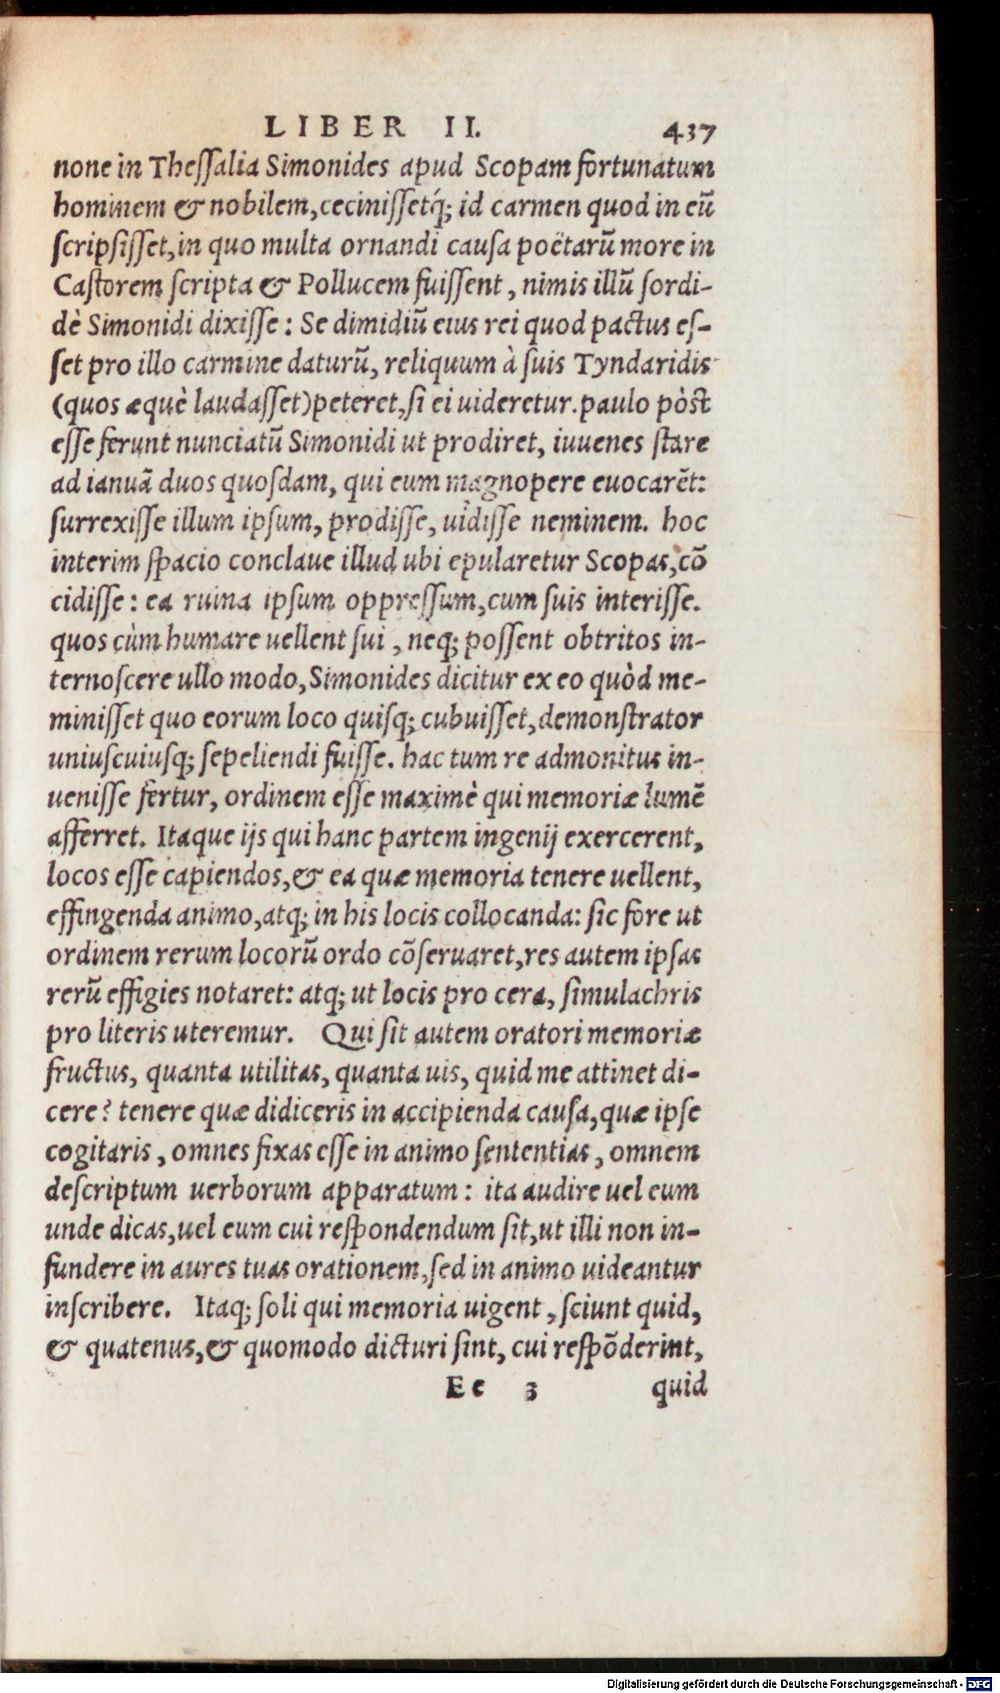 LIBER II. 437
none in Theſſalia Simonides apud Scopam fortunatum
hominem & nobilem, ceciniſſetq́; id carmen quod in eũ
ſcripſiſſet, in quo multa ornandi cauſa poëtarũ more in
Caſtorem ſcripta & Pollucem fuiſſent, nimis illũ ſordi-
dè Simonidi dixiſſe: Se dimidiũ eius rei quod pactus eſ-
ſet pro illo carmine daturũ, reliquum à ſuis Tyndaridis
(quos æquè laudaſſet) peteret, ſi ei uideretur. paulo pòſt
eſſe ferunt nunciatũ Simonidi ut prodiret, iuuenes ſtare
ad ianuã duos quoſdam, qui eum magnopere euocarẽt:
ſurrexiſſe illum ipſum, prodiſſe, uidiſſe neminem. hoc
interim ſpacio conclaue illud ubi epularetur Scopas, cõ
cidiſſe: ea ruina ipſum oppreſſum, cum ſuis interiſſe.
quos cùm humare uellent ſui, neq; poſſent obtritos in-
ternoſcere ullo modo, Simonides dicitur ex eo quòd me-
miniſſet quo eorum loco quiſq; cubuiſſet, demonſtrator
uniuſcuiuſq; ſepeliendi fuiſſe. hac tum re admonitus in-
ueniſſe fertur, ordinem eſſe maximè qui memoriæ lumẽ
afferret. Itaque ijs qui hanc partem ingenij exercerent,
locos eſſe capiendos, & ea quæ memoria tenere uellent,
effingenda animo, atq; in his locis collocanda: ſic fore ut
ordinem rerum locorũ ordo cõſeruaret, res autem ipſas
rerũ effigies notaret: atq; ut locis pro cera, ſimulachris
pro literis uteremur. Qui ſit autem oratori memoriæ
fructus, quanta utilitas, quanta uis, quid me attinet di-
cere? tenere quæ didiceris in accipienda cauſa, quæ ipſe
cogitaris, omnes fixas eſſe in animo ſententias, omnem
deſcriptum uerborum apparatum: ita audire uel eum
unde dicas, uel eum cui reſpondendum ſit, ut illi non in-
fundere in aures tuas orationem, ſed in animo uideantur
inſcribere. Itaq; ſoli qui memoria uigent, ſciunt quid,
& quatenus, & quomodo dicturi ſint, cui reſpõderint,
Ee 3 quid
Digitalisierung gefördert durch die Deutsche Forschungsgemeinschaft - DFG